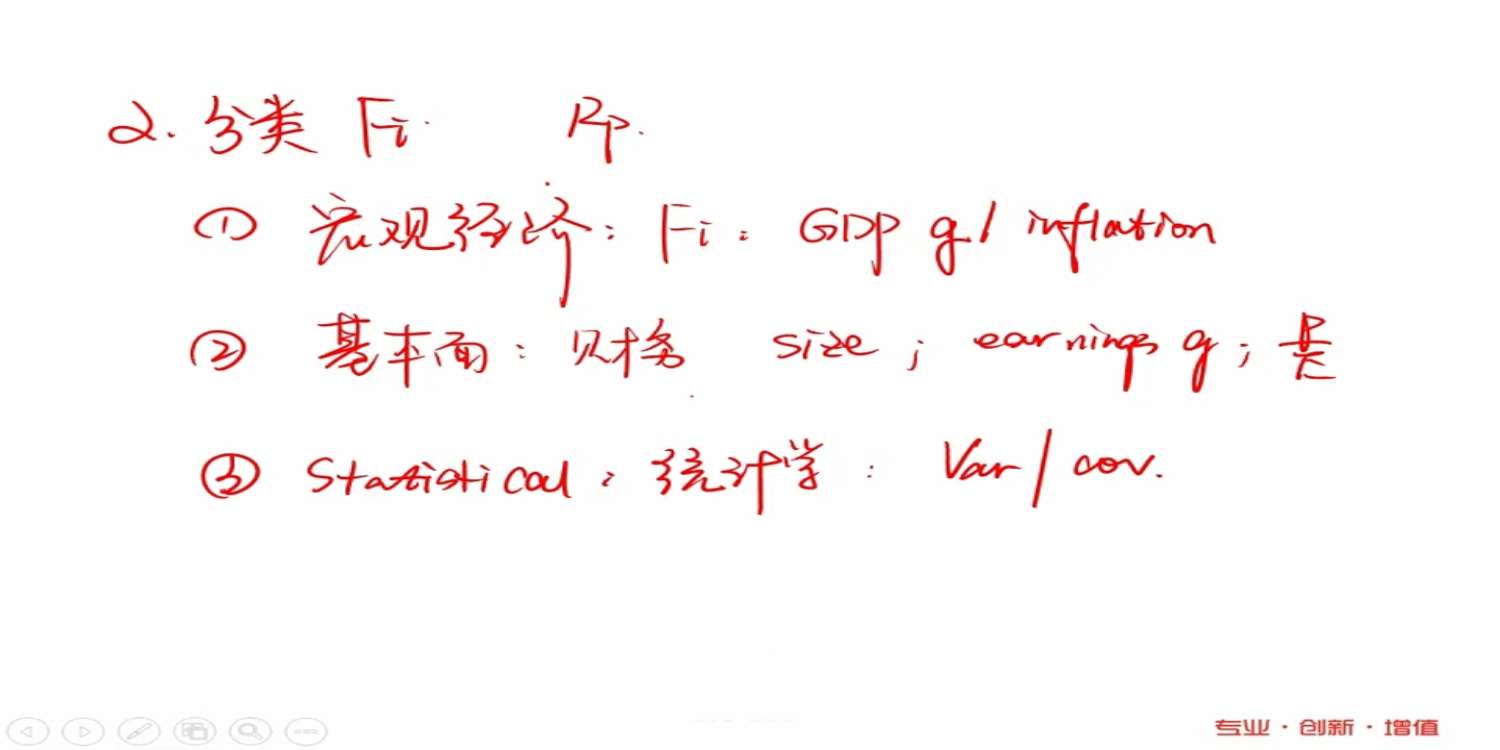 2. 分类 Fi. Rp.
① 宏观经济: Fi: GDP g / inflation
② 基本面: 财务 size; earnings g; P/E
③ Statistical: 统计学: Var / cov.
专业·创新·增值